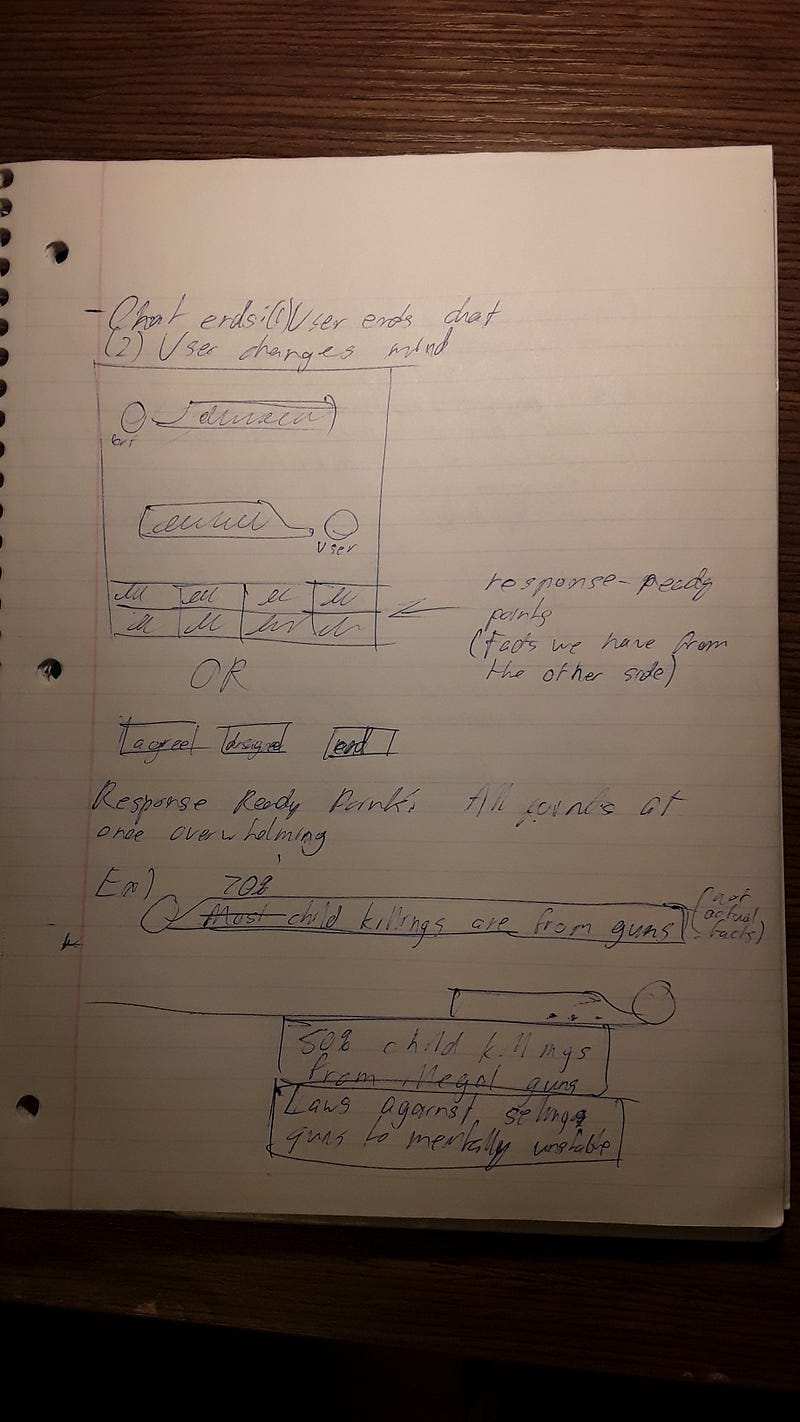 - Chat ends: (1) User ends chat
(2) User changes mind
bot
User
response-ready
points
(Facts we have from
the other side)
OR
agree disagree end
Response Ready Points: All points at
once overwhelming
Ex) 70%
Most child killings are from guns
(not
actual
facts)
...
50% child killings
from illegal guns
Laws against selling
guns to mentally unstable